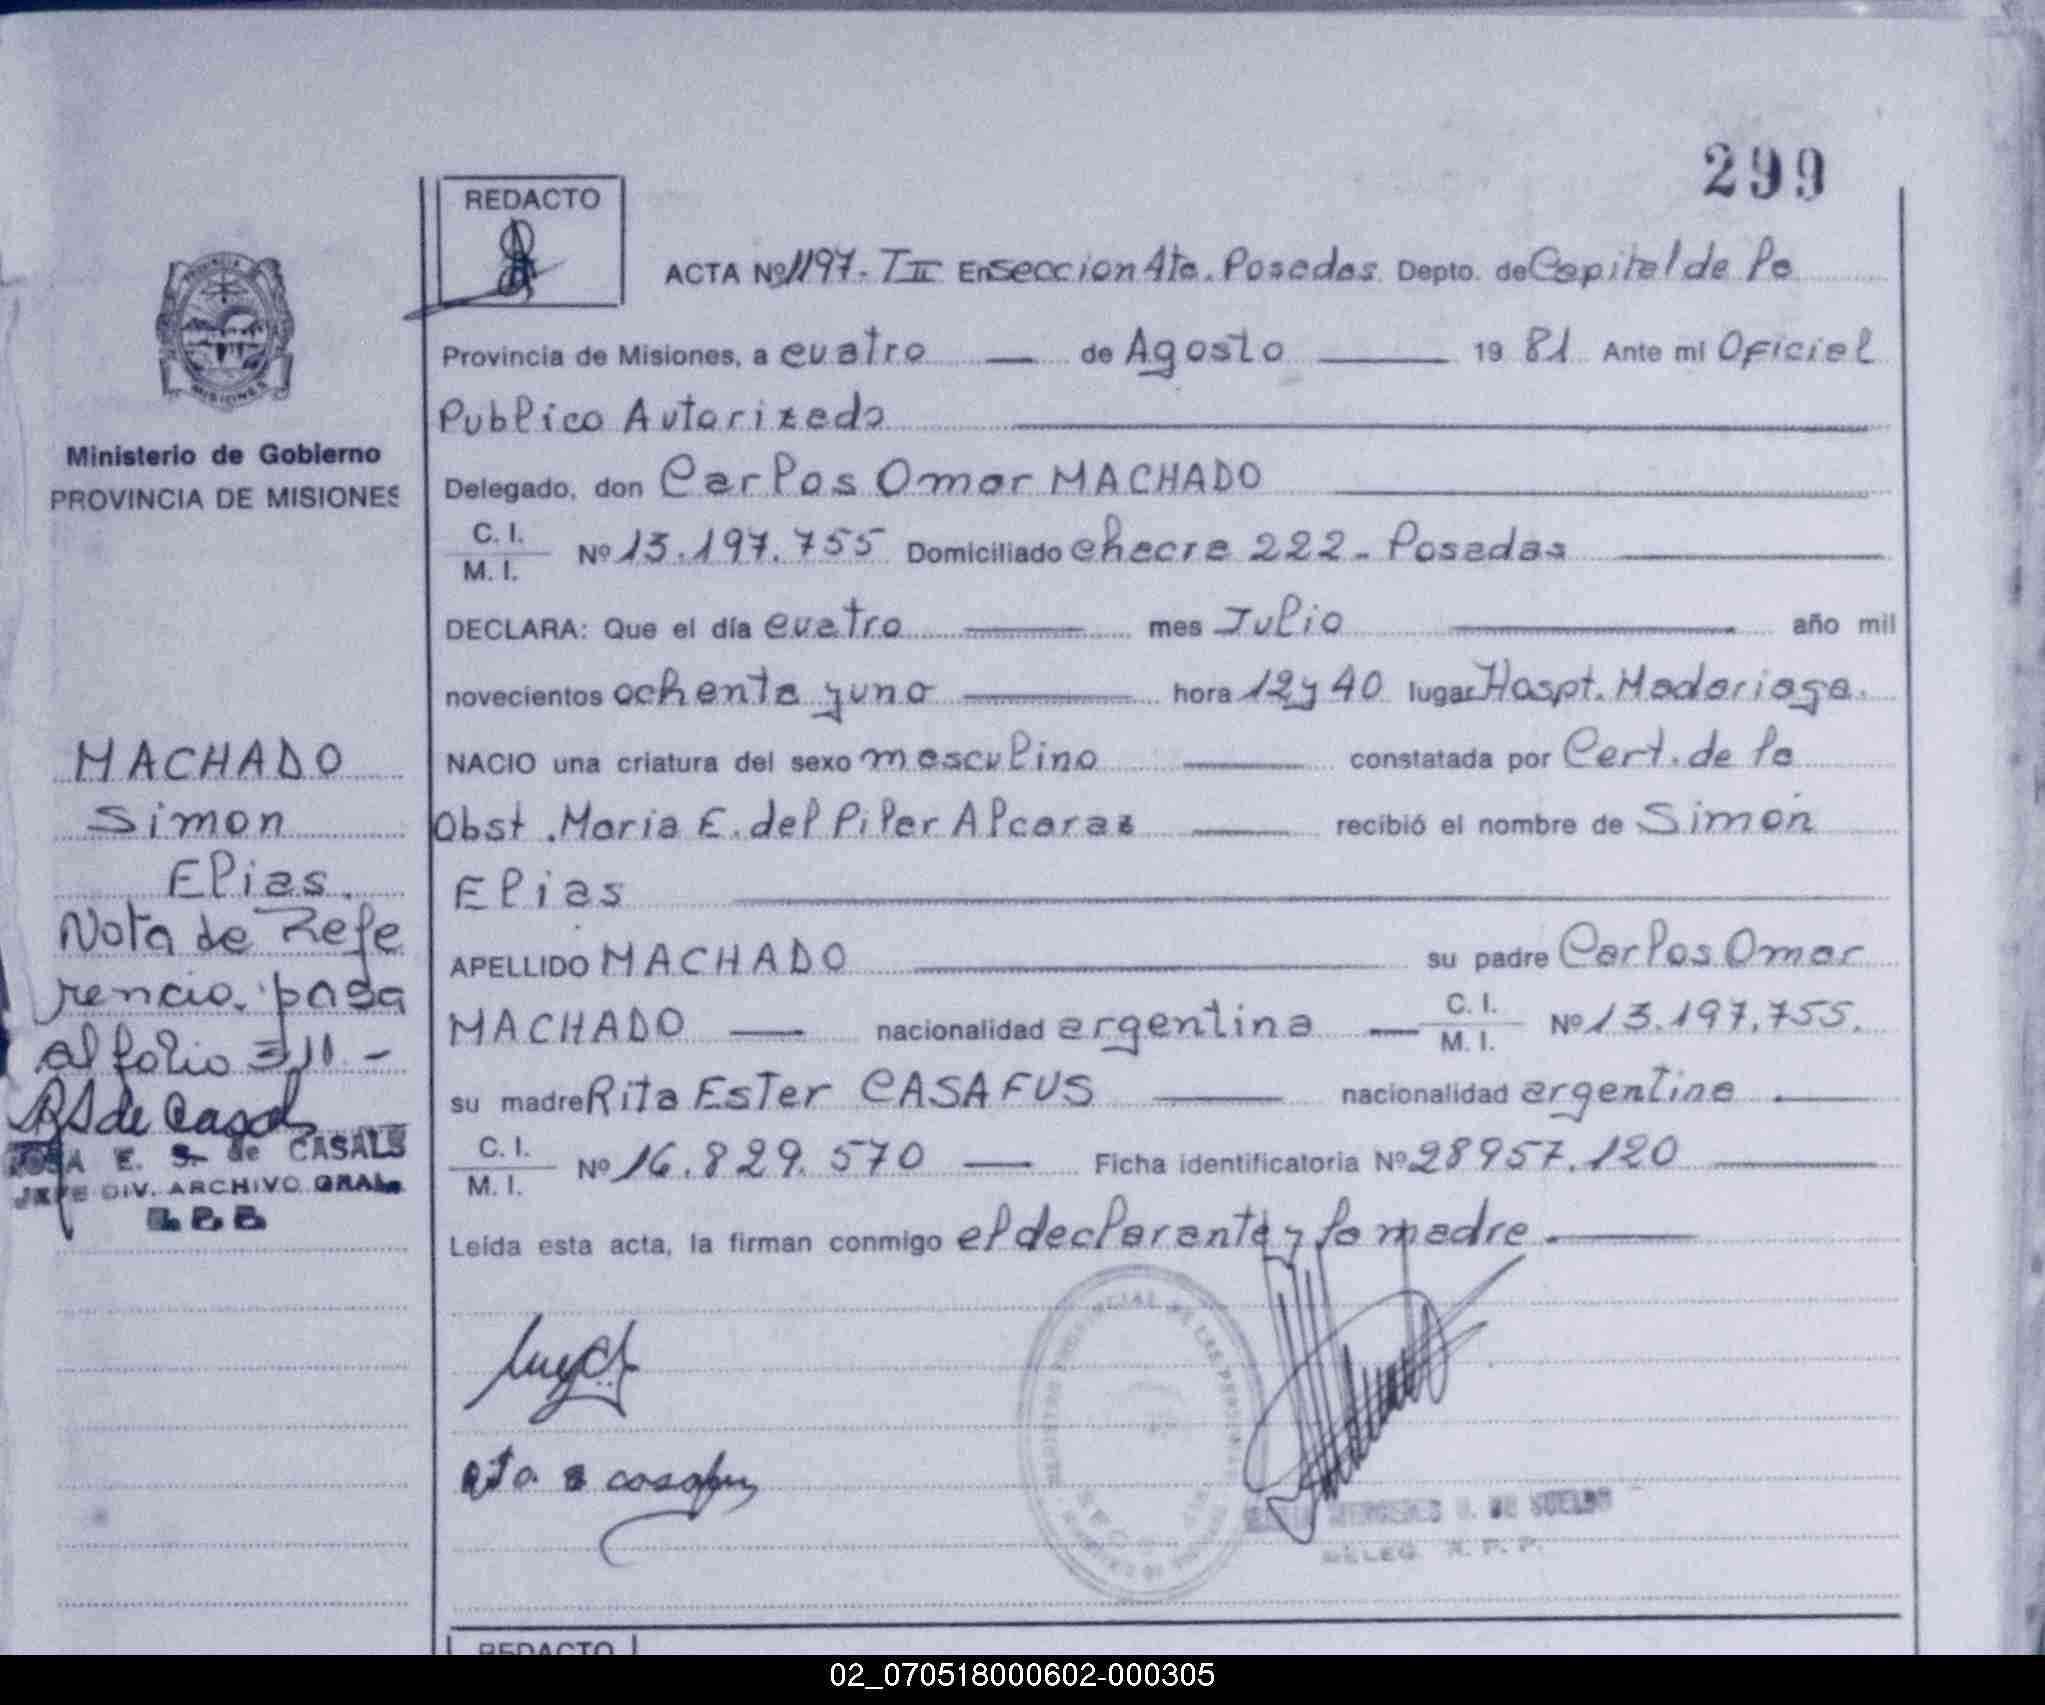 299
REDACTO
ACTA Nº 1197 - T II En Seccion 4ta. Posadas Depto. de Capital de la
Provincia de Misiones, a cuatro de Agosto 19 81 Ante mi Oficial
Publico Autorizado
Delegado, don Carlos Omar MACHADO
C. I.
M. I. Nº 13.197.755 Domiciliado chacra 222 - Posadas
DECLARA: Que el día cuatro mes Julio año mil
novecientos ochenta y uno hora 12 y 40 lugar Hospt. Madariaga.
NACIO una criatura del sexo masculino constatada por Cert. de la
Obst. Maria E. del Pilar Alcaraz recibió el nombre de Simón
Elias
APELLIDO MACHADO su padre Carlos Omar
MACHADO nacionalidad argentina C. I.
M. I. Nº 13.197.755.
su madre Rita Ester CASAFUS nacionalidad argentina.
C. I.
M. I. Nº 16.829.570 Ficha identificatoria Nº 28957.120
Leída esta acta, la firman conmigo el declarante y la madre.
MISIONES
Ministerio de Gobierno
PROVINCIA DE MISIONES
MACHADO
Simon
Elias.
Nota de Refe
rencia. pasa
al folio 311 -
RS de Casals
ROSA E. S. de CASALS
JEFE DIV. ARCHIVO GRAL.
MERCEDES DE SUELDO
DELEG. R. P. P.
REDACTO
02_070518000602-000305